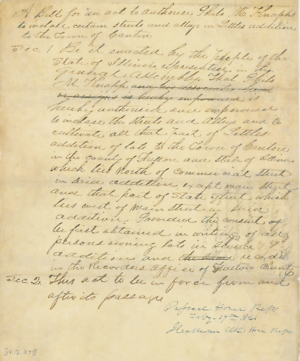 A Bill for an act to authorise Philo H. Knapp
to inclose certain streets and alleys in Pettles addition
to the Town of Canton
Sec 1 Be it enacted by the People of the
State of Illinois represented in the
General Assembly That Philo
H. Knapp and his
is hereby authorised
hereby authorised and empowered
to inclose the streets and alleys and to
cultivate all that part of Pettles
addition of lots to the Town of Canton
in the county of Fulton and State of Illinois
which lies North of Commercial Street
in said addition except main street
and that part of which
lies west of Main Street in said
addition Provided the consent
be first obtained in writing of all
persons owning lots in said
addition and recorded
in the Recorders Office of Fulton County
Sec 2 This act to be in force from and
after its passage